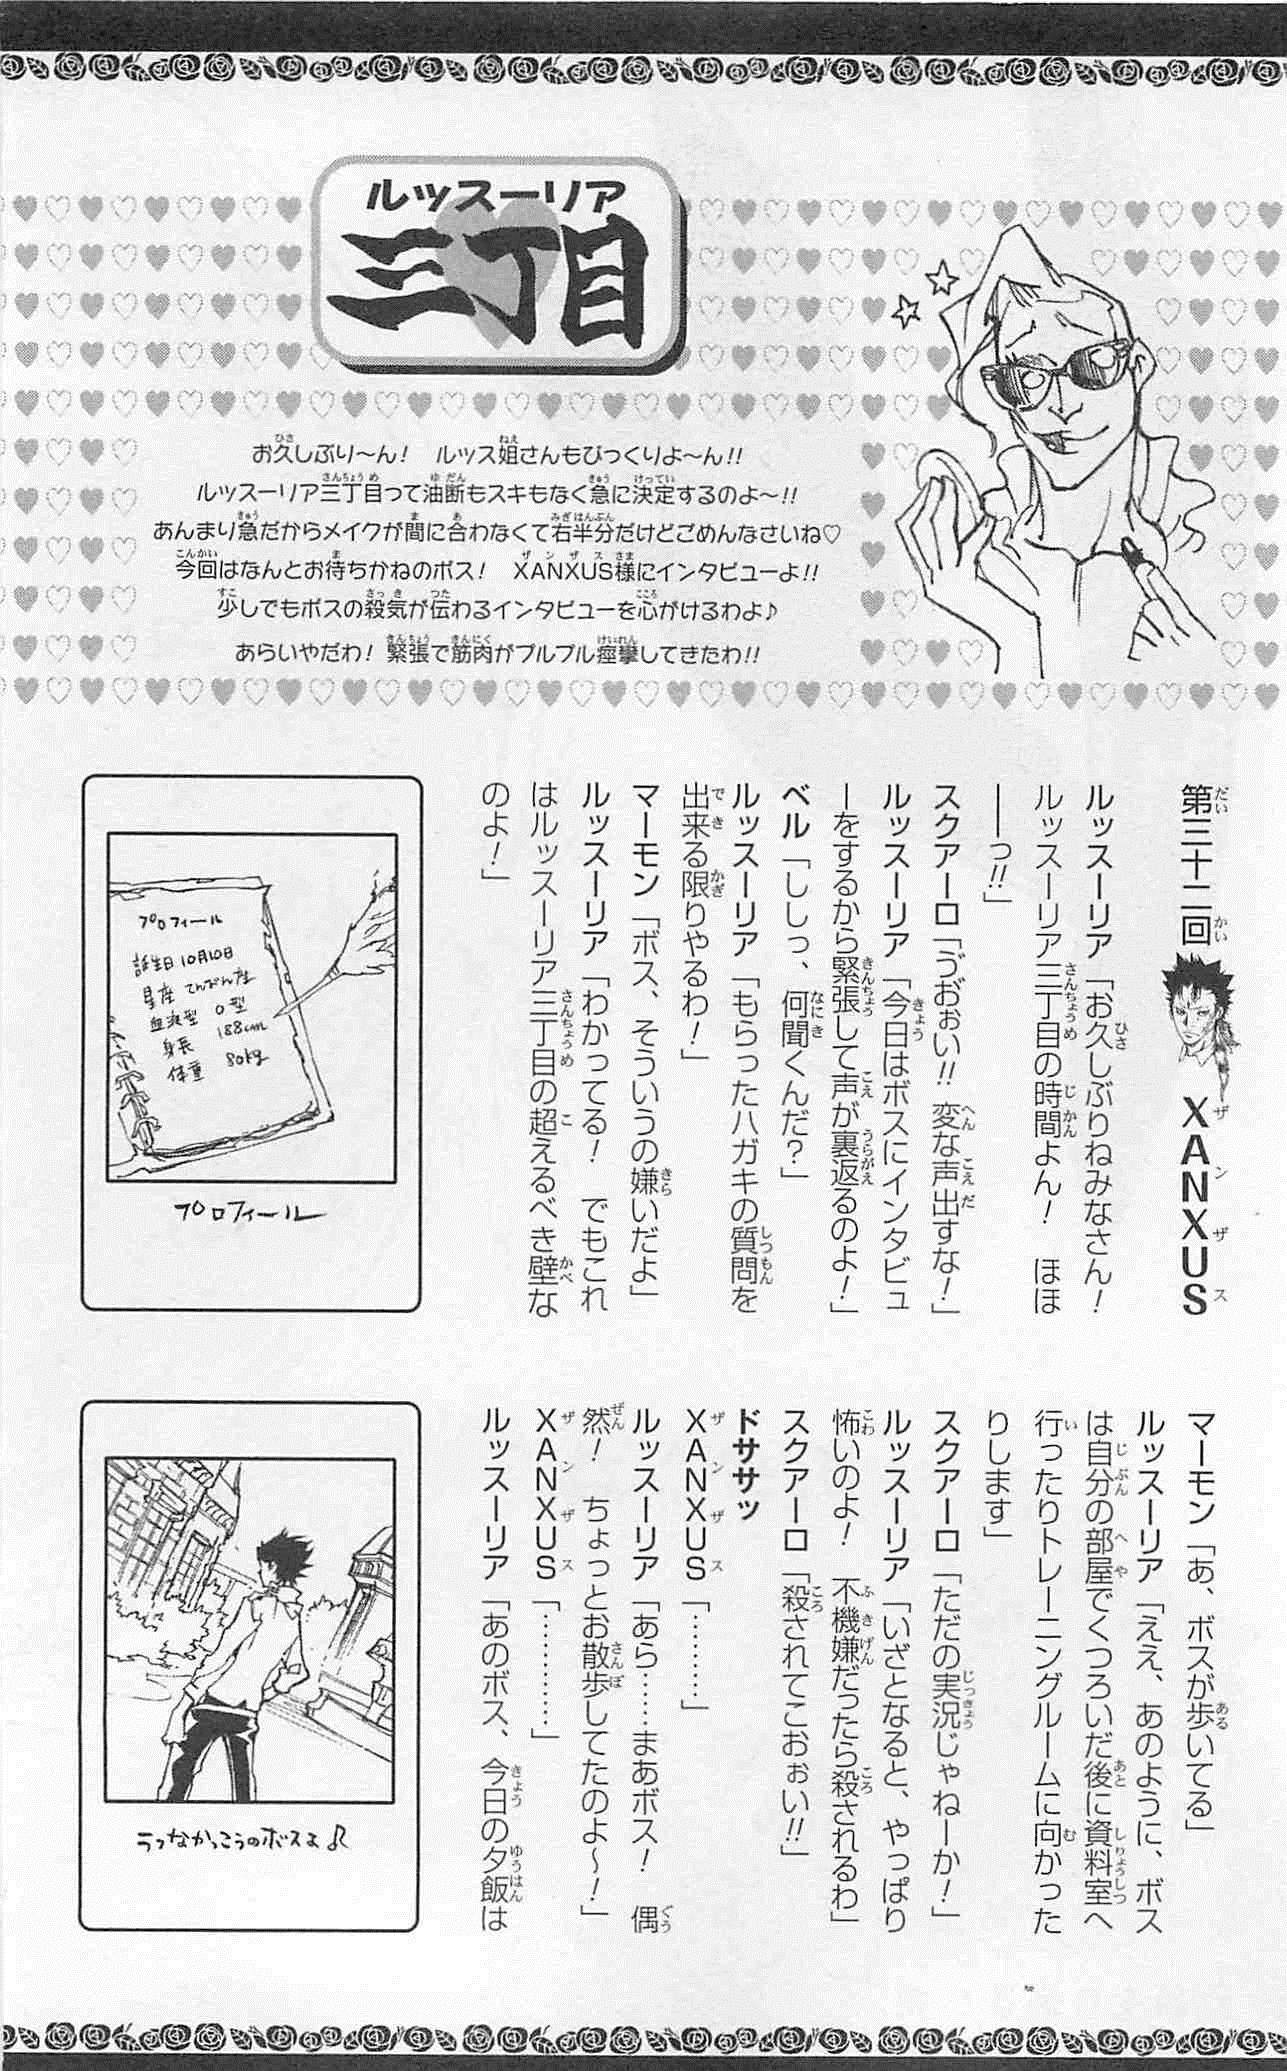 ルッスーリア
三丁目
お久しぶり〜ん！　ルッス姐さんもびっくりよ〜ん!!
ルッスーリア三丁目って油断もスキもなく急に決定するのよ〜!!
あんまり急だからメイクが間に合わなくて右半分だけどごめんなさいね♡
今回はなんとお待ちかねのボス！　XANXUS様にインタビューよ!!
少しでもボスの殺気が伝わるインタビューを心がけるわよ♪
あらいやだわ！緊張で筋肉がプルプル痙攣してきたわ!!
第三十二回　XANXUS
ルッスーリア「お久しぶりねみなさん！
ルッスーリア三丁目の時間よん！　ほほ
――っ!!」
スクアーロ「ゔお゙ぉい!!　変な声出すな！」
ルッスーリア「今日はボスにインタビュ
ーをするから緊張して声が裏返るのよ！」
ベル「ししっ、何聞くんだ？」
ルッスーリア「もらったハガキの質問を
出来る限りやるわ！」
マーモン「ボス、そういうの嫌いだよ」
ルッスーリア「わかってる！　でもこれ
はルッスーリア三丁目の超えるべき壁な
のよ！」
プロフィール
誕生日 10月10日
星座 てんびん座
血液型 O型
身長 188cm
体重 80kg
プロフィール
マーモン「あ、ボスが歩いてる」
ルッスーリア「ええ、あのように、ボス
は自分の部屋でくつろいだ後に資料室へ
行ったりトレーニングルームに向かった
りします」
スクアーロ「ただの実況じゃねーか！」
ルッスーリア「いざとなると、やっぱり
怖いのよ！　不機嫌だったら殺されるわ」
スクアーロ「殺されてこおぉい!!」
ドササッ
XANXUS「………」
ルッスーリア「あら……まあボス！　偶
然！　ちょっとお散歩してたのよ〜！」
XANXUS「…………」
ルッスーリア「あのボス、今日の夕飯は
うつなかっこうのボスよ♪